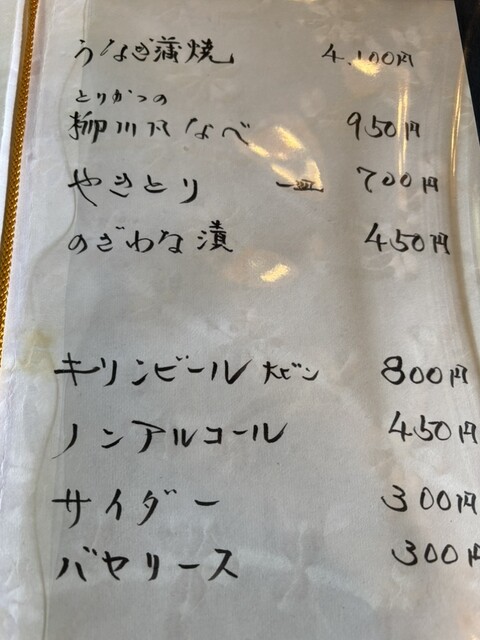 うなぎ蒲焼 4.100円
とりかつの
柳川風なべ 950円
やきとり 一皿 700円
のざわな漬 450円
キリンビール 大ビン 800円
ノンアルコール 450円
サイダー 300円
バヤリース 300円